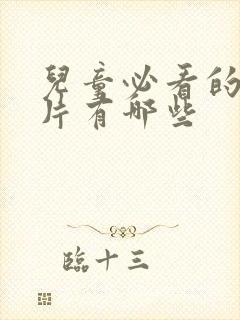 兒童必看的
片有哪些
臨十三